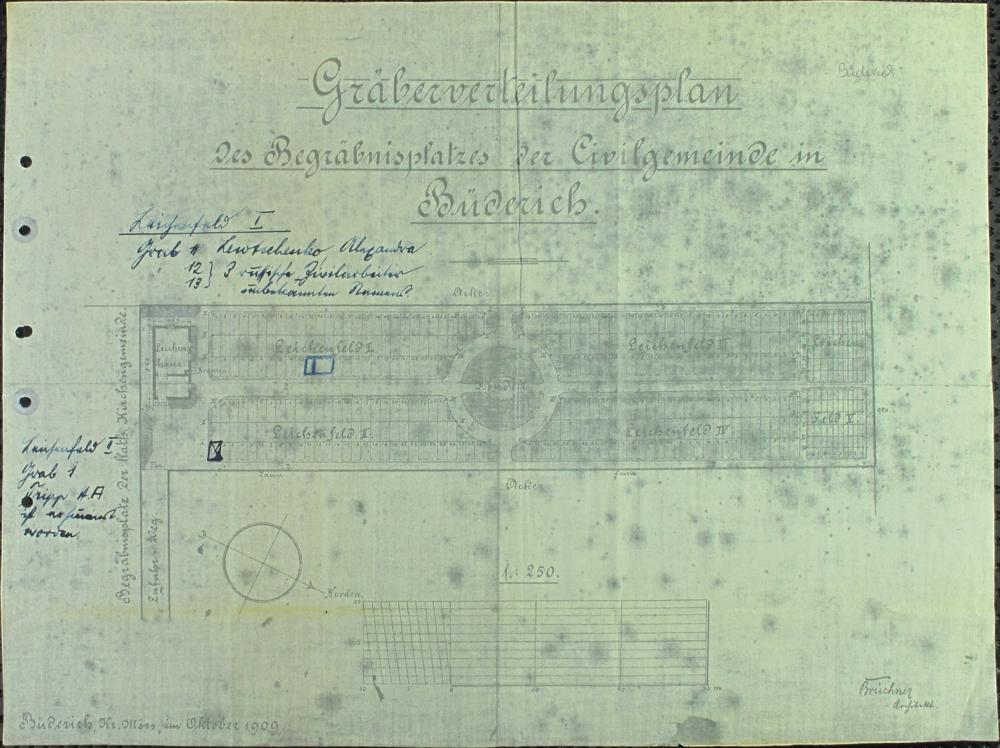 Büderich
Gräberverteilungsplan
des Begräbnisplatzes der Civilgemeinde in
Büderich.
Leichenfeld I
Grab 11 Lewtschenko, Alexandra
12 } 3 russische Zivilarbeiter
13 } unbekannten Namens.
Acker
Leichenhaus
Leichenfeld I.
Leichenfeld III
Leichen
Rondell
Leichenfeld II.
Leichenfeld IV
Feld V.
Begräbnisplatz der Kath. Kirchengemeinde
Leichenfeld II
Grab 1
Tripp H.A
ist exhumiert
worden.
Zaun
Zaun
Acker
Zufuhr-Weg.
Norden.
1.: 250.
Brüchner
Architekt.
Büderich, Kr. Mörs, im Oktober 1909.